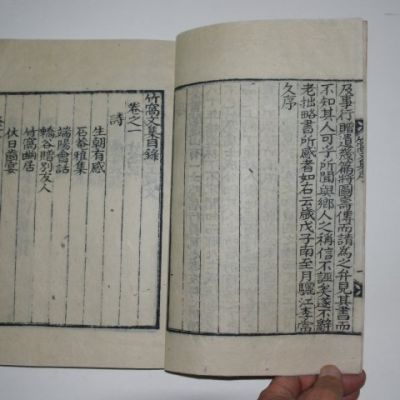 及事行贈遺幾篇將圖壽傳而請為之弁見其書而
不知其人可乎所聞與鄉人之稱信不誣矣遂不辭
老拙略書所感者如右云歲戊子南至月驪江李
久序
竹窩文集目錄
卷之一
詩
生朝有感
石菴雅集
端陽會話
竹窩幽居
伏日